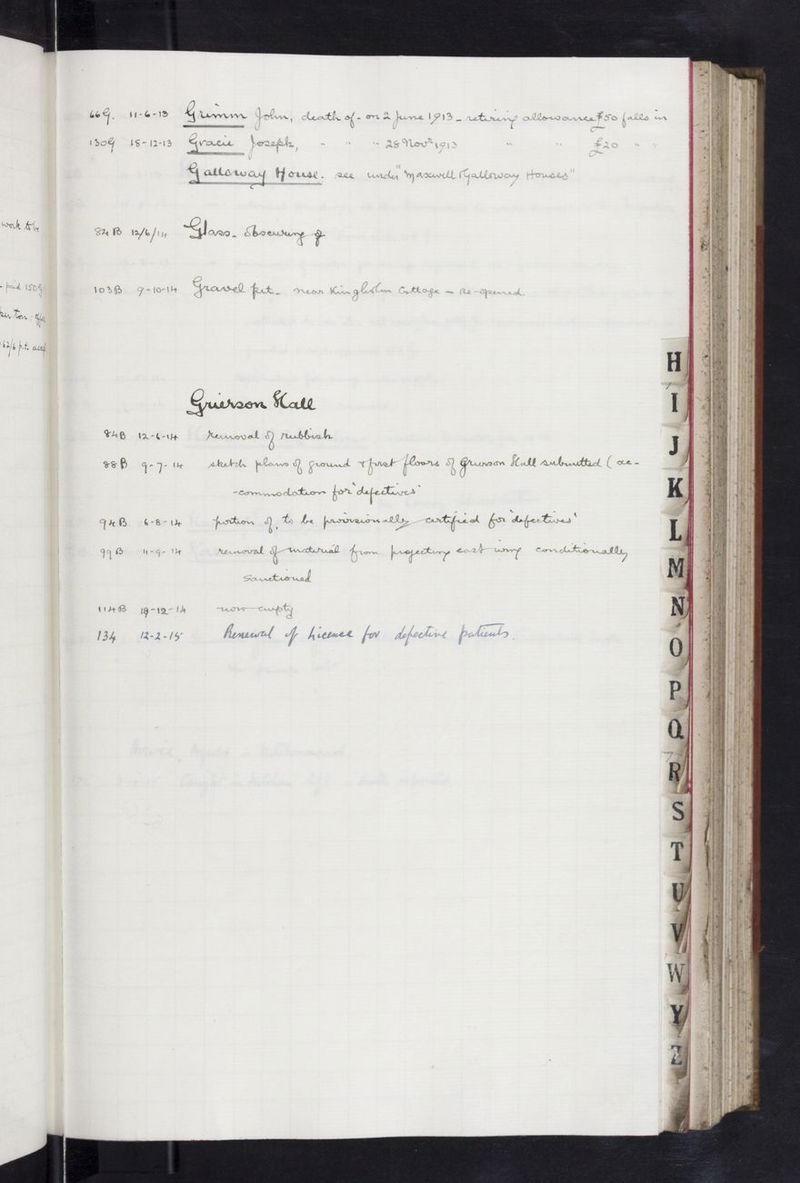 66G. 11-6-13 Grimm John, death of - on 2 June 1913 - retiring allowance £50 falls in
130G 18-12-13 Gracie Joseph, " " " 28 Novr 1913 " " £20 " "
Galloway House. see under "Maxwell & Galloway Houses"
84B 12/6/14 Glass - obscuring of
103B 9-10-14 Gravel pit - near Kingholm Cottage - re-opened
Grierson Hall
84B 12-6-14 removal of rubbish
88B 9-7-14 sketch plans of ground & first floors of Grierson Hall submitted (ac-
-commodation for "defectives"
94B 6-8-14 portion of, to be provisionally certified for "defectives"
99B 11-9-14 removal of material from projecting east wing conditionally
sanctioned
114B 19-12-14 now empty
134 12-2-15 Renewal of License for defective patients.
work to be
- paid 150G
per ton
62/6 p.t.
H
I
J
K
L
M
N
O
P
Q
R
S
T
U
V
W
Y
Z